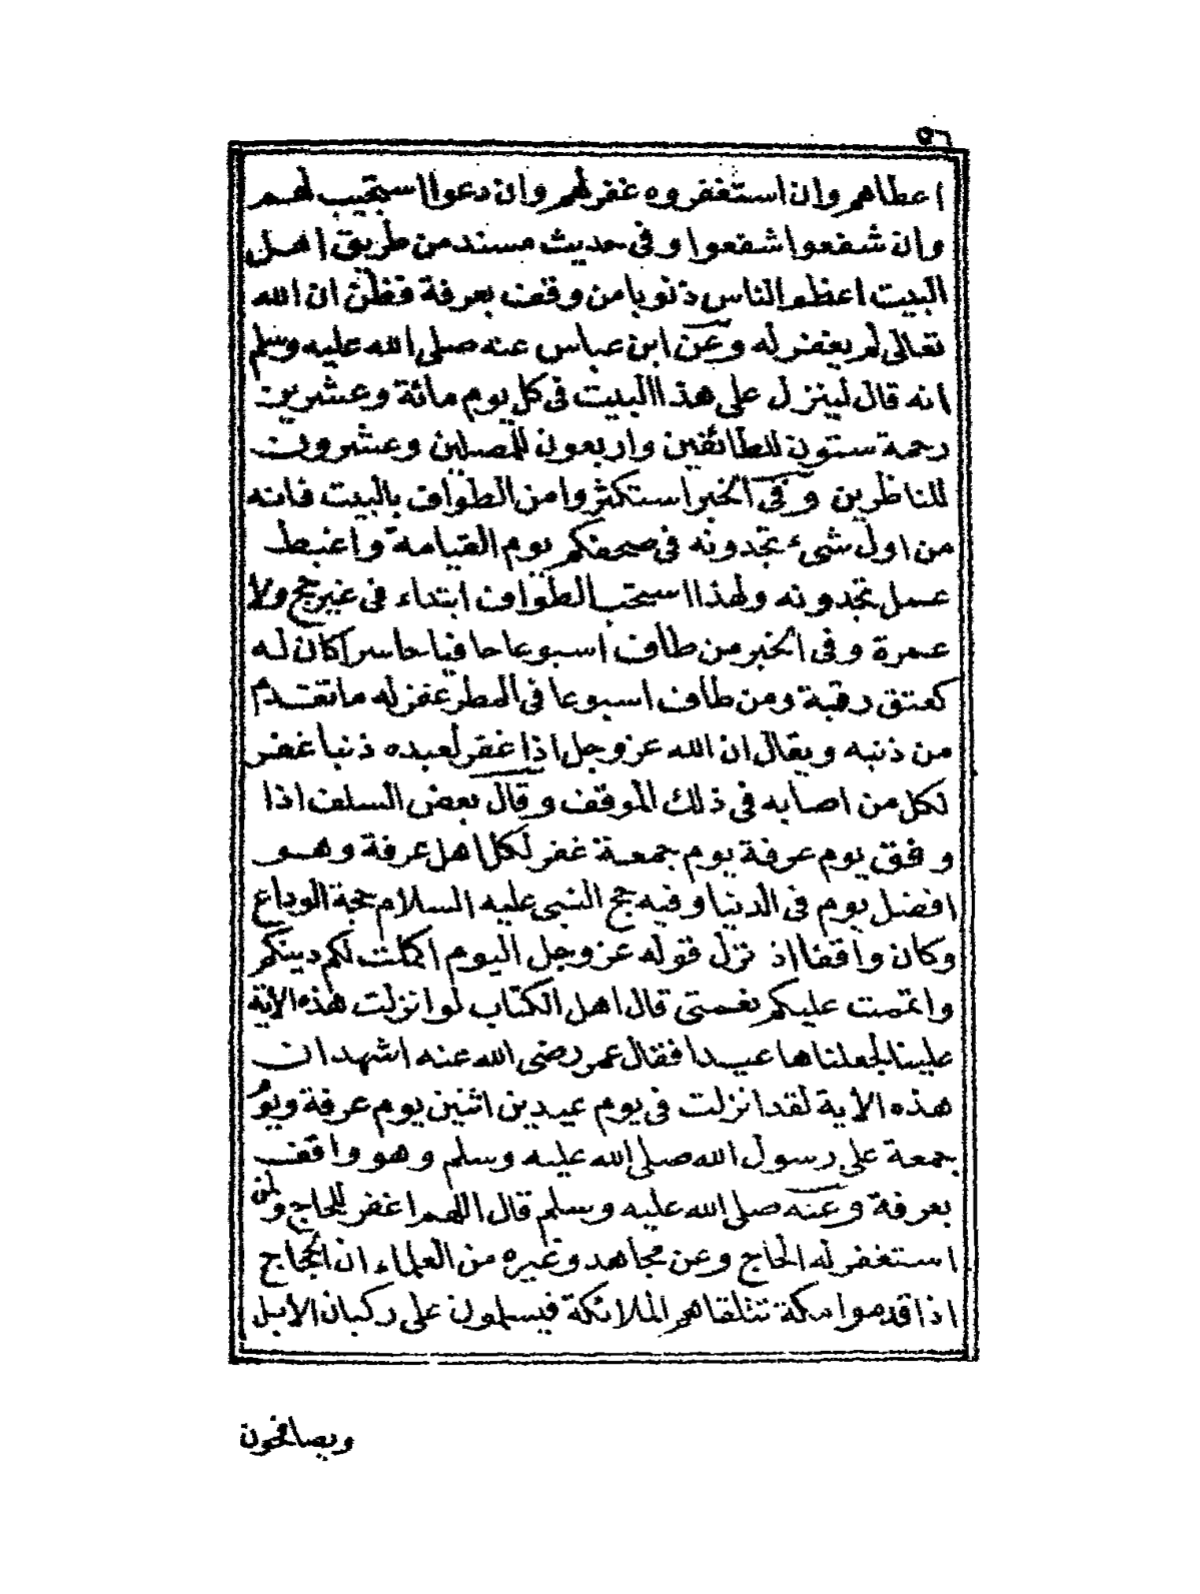 ٥٦
اعطاهم وان استغفروه غفر لهم وان دعوا استجيب لهم
وان شفعوا شفعوا وفى حديث مسند من طريق اهل
البيت اعظم الناس ذنوبا من وقف بعرفة فظن ان الله
تعالى لم يغفر له وعن ابن عباس عنه صلى الله عليه وسلم
انه قال لينزل على هذا البيت فى كل يوم مائة وعشرين
رحمة ستون للطائفين واربعون للمصلين وعشرون
للناظرين وفى الخبر استكثروا من الطواف بالبيت فانه
من اول شىء تجدونه فى صحفكم يوم القيامة واغبط
عمل تجدونه ولهذا استحب الطواف ابتداء فى غير حج ولا
عمرة وفى الخبر من طاف اسبوعا حافيا حاسرا كان له
كعتق رقبة ومن طاف اسبوعا فى المطر غفر له ما تقدم
من ذنبه ويقال ان الله عز وجل اذا غفر لعبده ذنبا غفر
لكل من اصابه فى ذلك الموقف وقال بعض السلف اذا
وفق يوم عرفة يوم جمعة غفر لكل اهل عرفة وهو
افضل يوم فى الدنيا وفيه حج النبى عليه السلام حجة الوداع
وكان واقفا اذ نزل قوله عز وجل اليوم اكملت لكم دينكم
واتممت عليكم نعمتى قال اهل الكتاب لو انزلت هذه الاية
علينا لجعلناها عيدا فقال عمر رضى الله عنه اشهد ان
هذه الاية لقد انزلت فى يوم عيدين اثنين يوم عرفة ويوم
جمعة على رسول الله صلى الله عليه وسلم وهو واقف
بعرفة وعنه صلى الله عليه وسلم قال اللهم اغفر للحاج ولمن
استغفر له الحاج وعن مجاهد وغيره من العلماء ان الحجاج
اذا قدموا مكة تتلقاهم الملائكة فيسلمون على ركبان الابل
ويصافحون